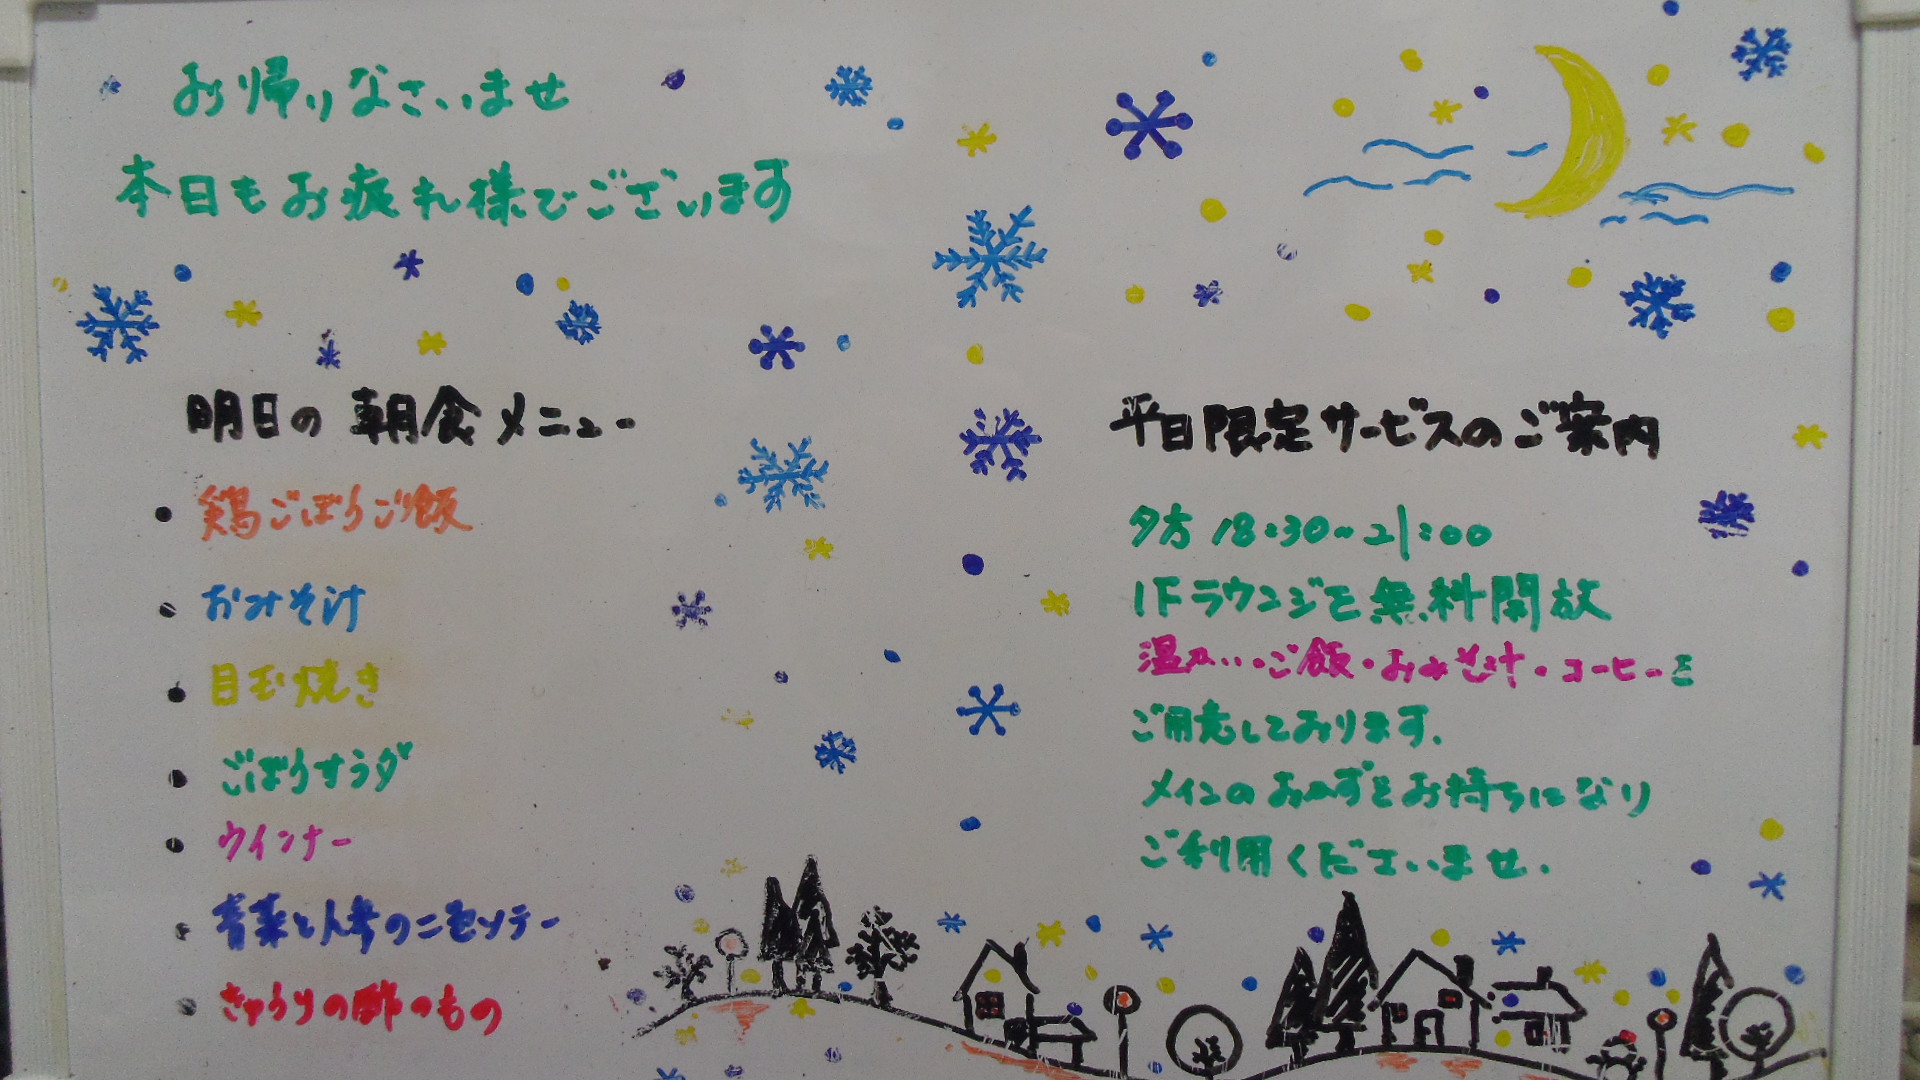 お帰りなさいませ
本日もお疲れ様でございます
明日の朝食メニュー
・鶏ごぼうご飯
・おみそ汁
・目玉焼き
・ごぼうサラダ
・ウインナー
・青菜と人参の二色ソテー
・きゅうりの酢のもの
平日限定サービスのご案内
夕方 18:30~21:00
1Fラウンジを無料開放
温かい・ご飯・おみそ汁・コーヒーを
ご用意しております.
メインのおかずをお持ちになり
ご利用くださいませ.